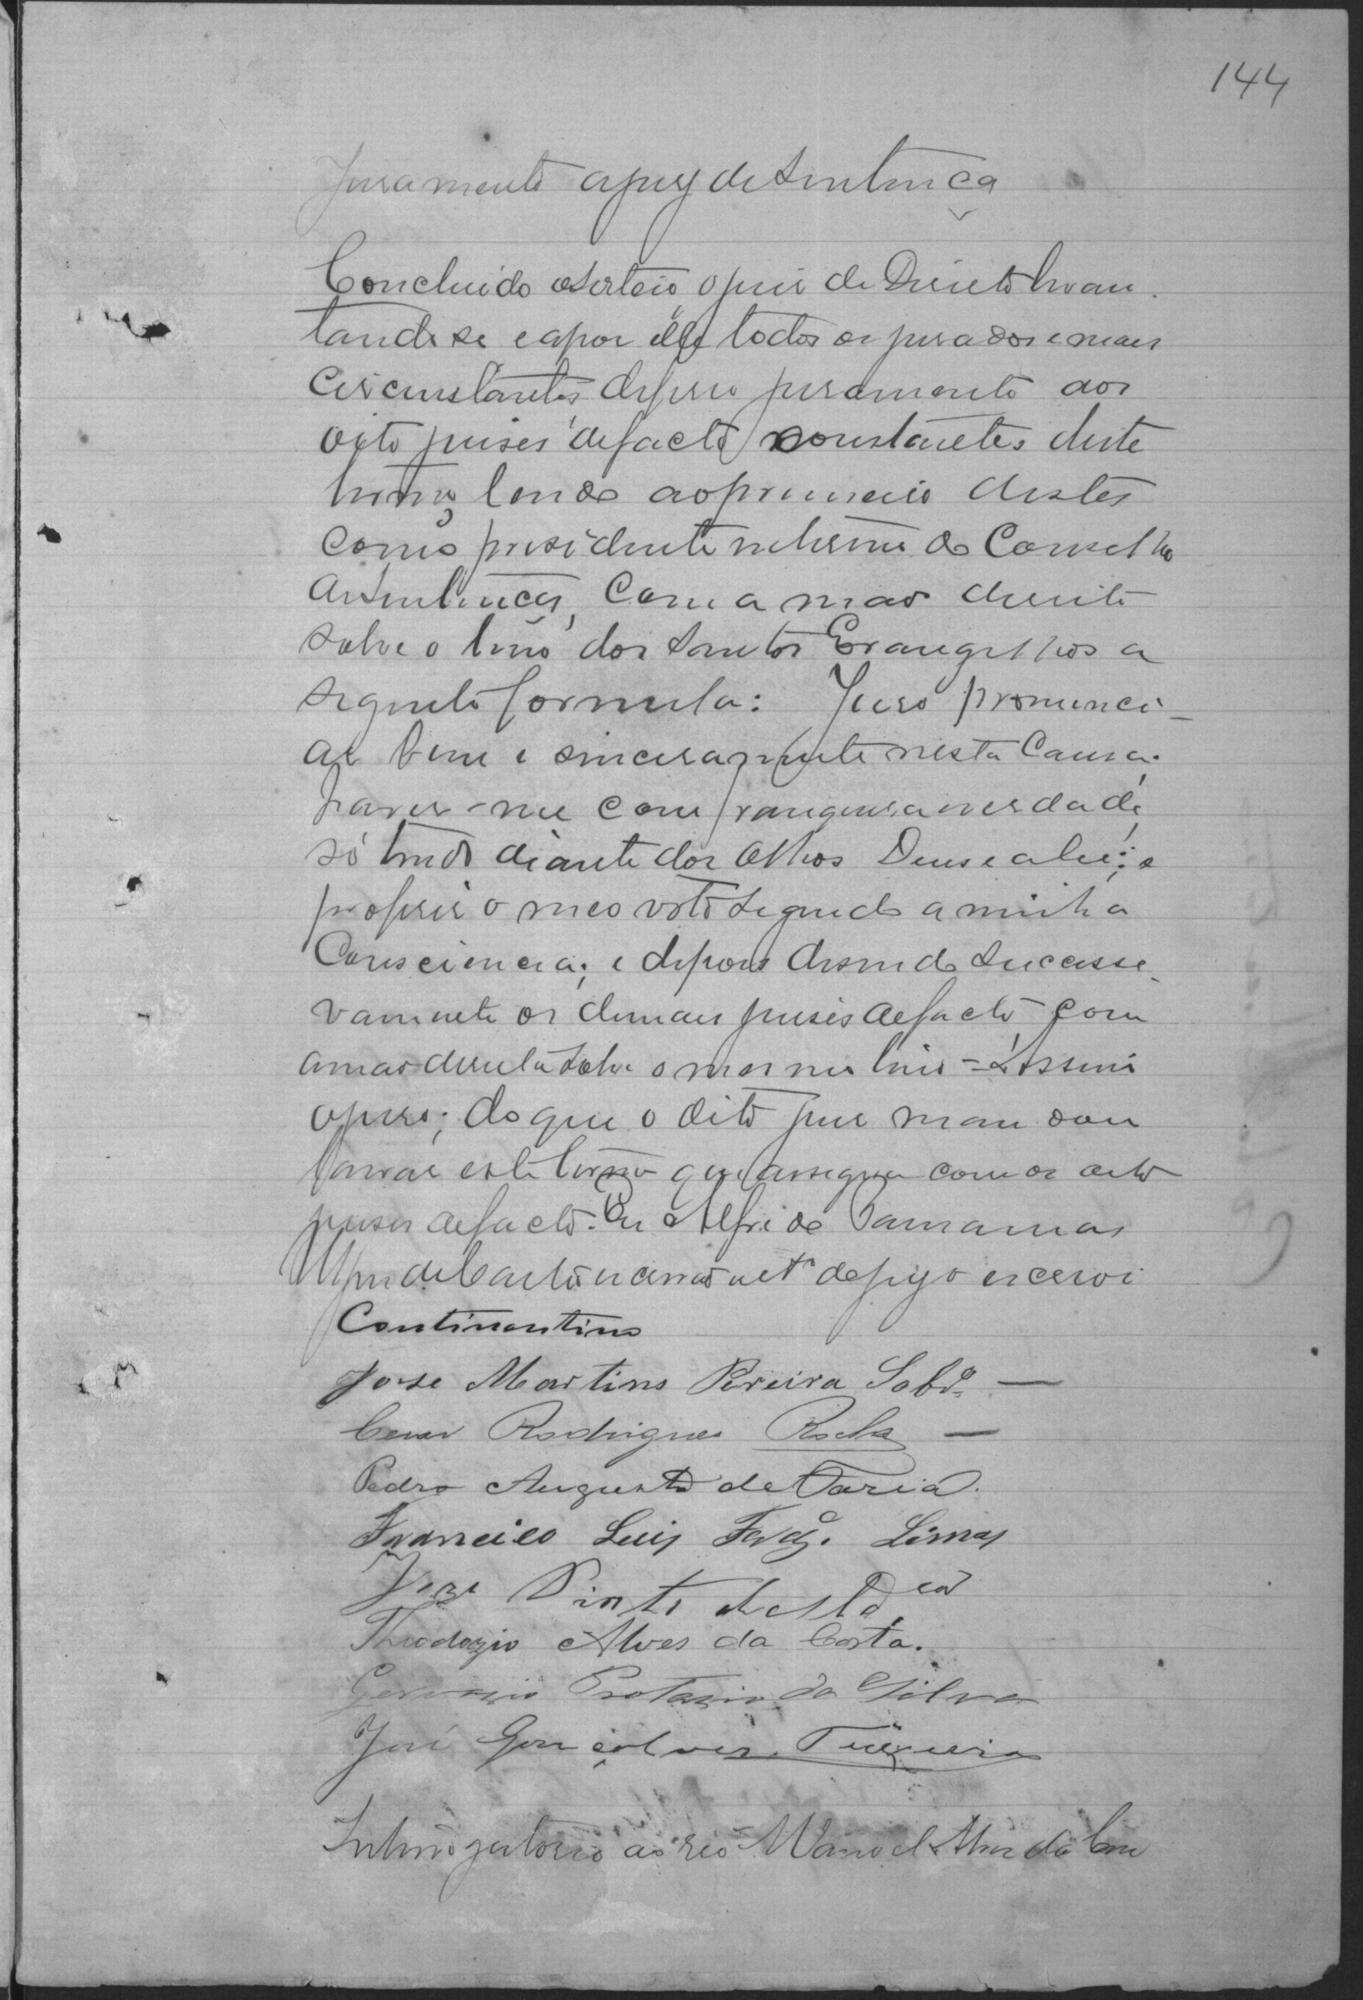 144
Juramento a juiz de sentença
Concluido o sorteio o juiz de Direito levan-
tando se e apoz elle todos os jurados e mais
circunstantes, deferio juramento aos
oito juises de facto constantes deste
termo, lendo ao primeiro destes
como presidente interino do Conselho
de sentença, com a mão direita
sobre o livro dos Santos Evangelhos a
seguinte formula: Juro pronunci-
ar bem e sinceramente nesta causa;
haver-me com franquesa e verdade
só tendo diante dos olhos Deus e a lei; e
proferir o meo voto segundo a minha
consciencia; e depois disendo successi-
vamente os demais juises de facto com
a mão direita sobre o mesmo livro = Assim
o juro; do que o dito juiz mandou
lavrar este termo que assigna com os oito
juises de facto. Eu Alfredo
escrivão do jury o escrevi
Continentino
Jose Martins Pereira Sobrº —
Cesar Rodrigues Rocha —
Pedro Augusto de Faria.
Francisco Luis Limas
Jose Pinto de
Theodozio Alves da Costa.
Gervasio Protasio da Silva
José Gonçalves Teixeira
Interrogatorio ao réo Manoel